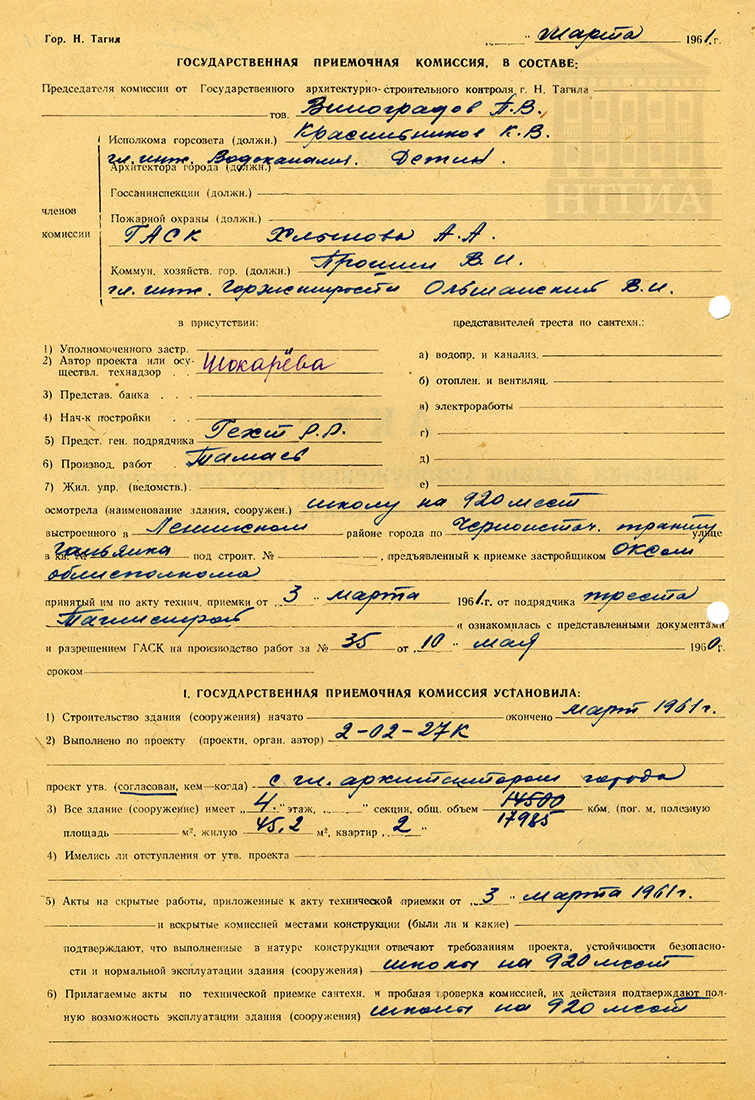 Гор. Н. Тагил „ " марта 1961 г.
ГОСУДАРСТВЕННАЯ ПРИЕМОЧНАЯ КОМИССИЯ, В СОСТАВЕ:
Председателя комиссии от Государственного архитектурно-строительного контроля г. Н. Тагила
тов. Виноградов П.В.
Исполкома горсовета (должн.) Красильников К.В.
гл. инж. Водоканала. Детин.
Архитектора города (должн.)
Госсанинспекции (должн.)
членов
Пожарной охраны (должн.)
комиссии
ГАСК Хлынова А.А.
Коммун. хозяйств. гор. (должн.) Прошин В.И.
гл. инж. Горжилуправления Ольшанский В.И.
в присутствии:
представителей треста по сантехн.:
1) Уполномоченного застр.
2) Автор проекта или осу-
ществл. технадзор . . Шокарёва
3) Представ. банка . . .
4) Нач-к постройки .
5) Предст. ген. подрядчика Гехт Р.Р.
6) Производ. работ . Тамаев
7) Жил. упр. (ведомств.).
а) водопр. и канализ.
б) отоплен. и вентиляц.
в) электроработы
г)
д)
е)
осмотрела (наименование здания, сооружен.) школу на 920 мест
выстроенного в Ленинском районе города по Черноисточ. тракту улице
в кв. № Гальянка под строит. № , предъявленный к приемке застройщиком ОКСом
облисполкома
принятый им по акту технич. приемки от „ 3 " марта 1961 г. от подрядчика треста
Тагилстрой и ознакомилась с представленными документами
и разрешением ГАСК на производство работ за № 35 от „ 10 " мая 1960 г.
сроком
I. ГОСУДАРСТВЕННАЯ ПРИЕМОЧНАЯ КОМИССИЯ УСТАНОВИЛА:
1) Строительство здания (сооружения) начато окончено март 1961 г.
2) Выполнено по проекту (проектн. орган. автор) 2-02-27К
проект утв. (согласован, кем—когда) с гл. архитектором города
3) Все здание (сооружение) имеет „ 4. " этаж, „ " секции, общ. объем 14500 кбм. (пог. м, полезную
17985
площадь м², жилую 45,2 м², квартир „ 2 "
4) Имелись ли отступления от утв. проекта
5) Акты на скрытые работы, приложенные к акту технической приемки от „ 3 " марта 1961 г.
и вскрытые комиссией местами конструкции (были ли и какие)
подтверждают, что выполненные в натуре конструкции отвечают требованиям проекта, устойчивости безопасно-
сти и нормальной эксплуатации здания (сооружения) школы на 920 мест
6) Прилагаемые акты по технической приемке сантехн. и пробная проверка комиссией, их действия подтверждают пол-
ную возможность эксплуатации здания (сооружения) школы на 920 мест
НТГИА